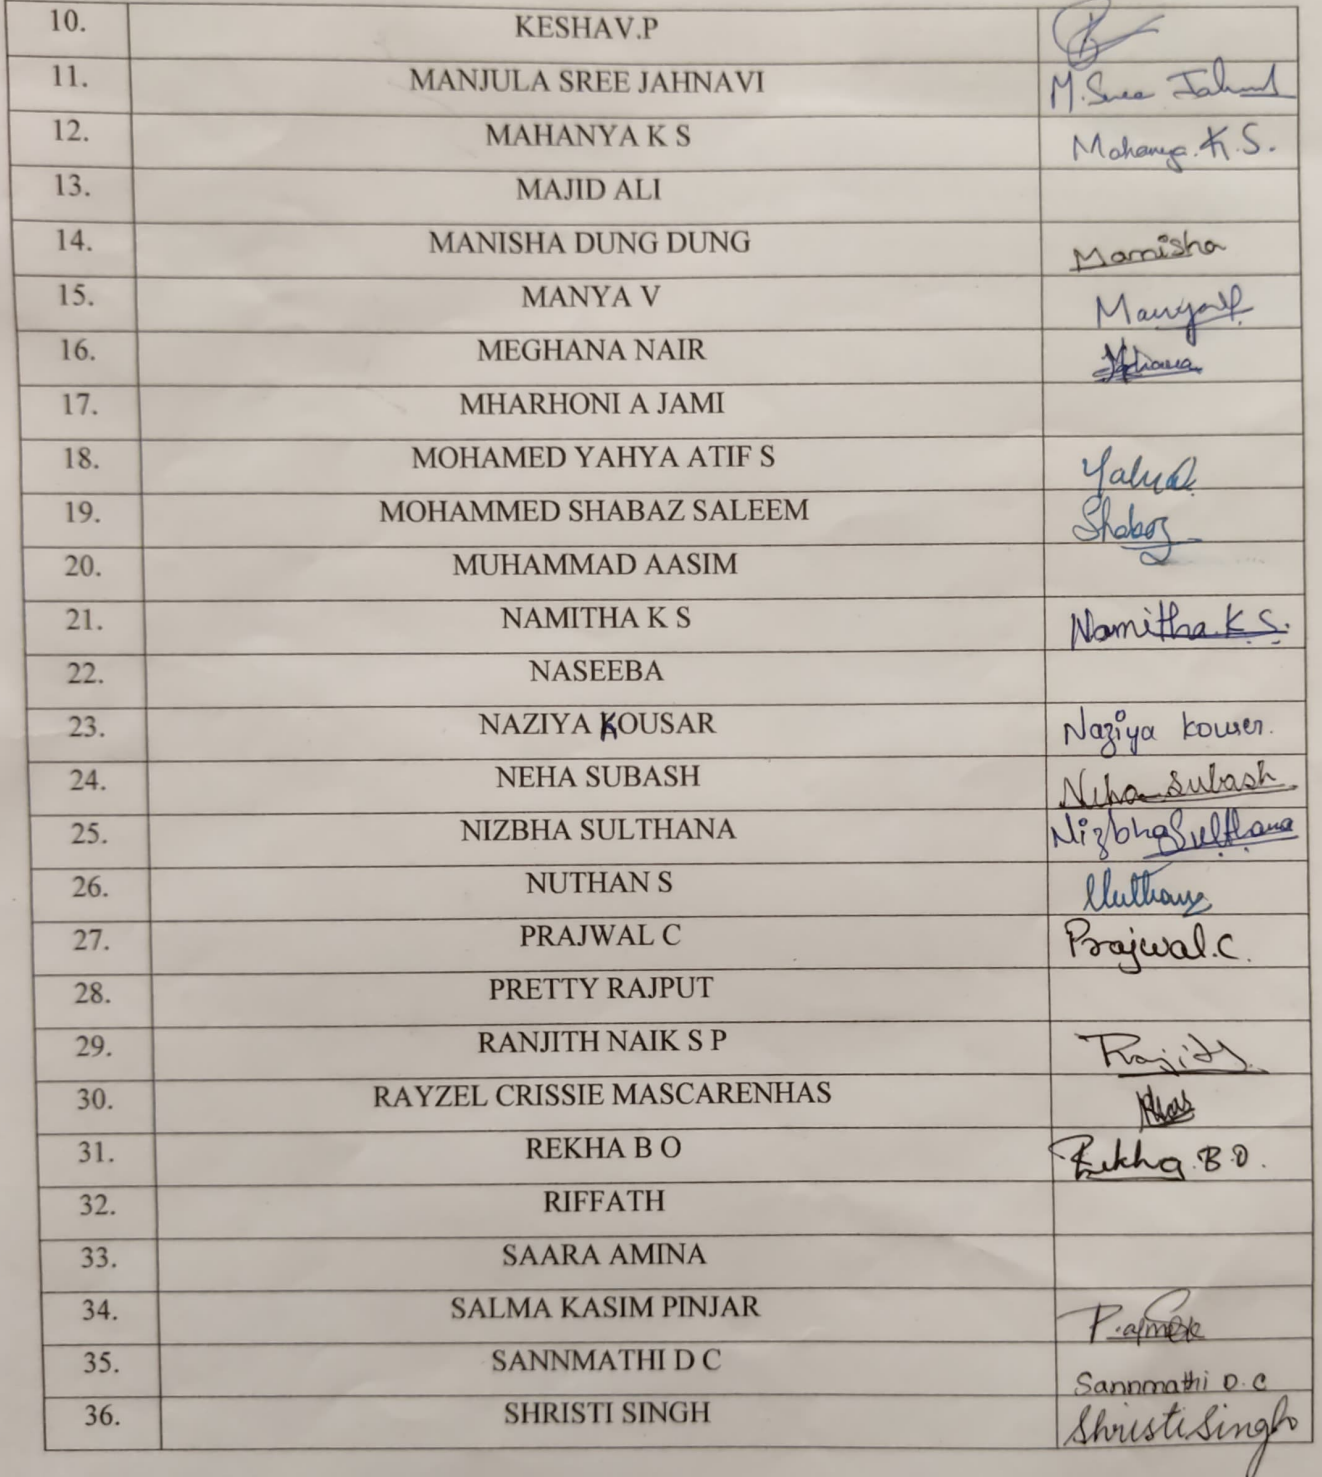 10. KESHAV.P
11. MANJULA SREE JAHNAVI M. Sree
12. MAHANYA K S Mahanya. K.S.
13. MAJID ALI
14. MANISHA DUNG DUNG Manisha
15. MANYA V
16. MEGHANA NAIR
17. MHARHONI A JAMI
18. MOHAMED YAHYA ATIF S
19. MOHAMMED SHABAZ SALEEM Shabaz
20. MUHAMMAD AASIM
21. NAMITHA K S Namitha. K S.
22. NASEEBA
23. NAZIYA KOUSAR Naziya Kouser.
24. NEHA SUBASH Neha Subash
25. NIZBHA SULTHANA Nizbha Sulthana
26. NUTHAN S
27. PRAJWAL C Prajwal.C.
28. PRETTY RAJPUT
29. RANJITH NAIK S P
30. RAYZEL CRISSIE MASCARENHAS
31. REKHA B O Rekha. B.O.
32. RIFFATH
33. SAARA AMINA
34. SALMA KASIM PINJAR
35. SANNMATHI D C Sannmathi D.C
36. SHRISTI SINGH Shristi Singh